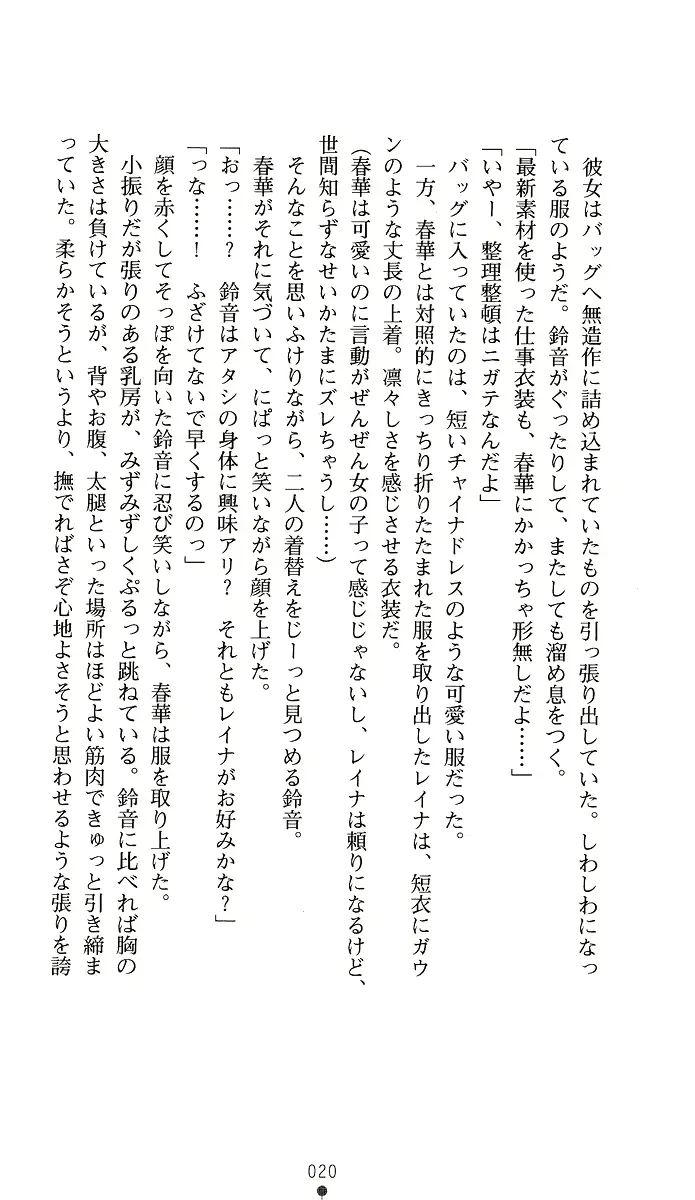 彼女はバッグへ無造作に詰め込まれていたものを引っ張り出していた。しわしわになっ
ている服のようだ。鈴音がぐったりして、またしても溜め息をつく。
「最新素材を使った仕事衣装も、春華にかかっちゃ形無しだよ……」
「いやー、整理整頓はニガテなんだよ」
　バッグに入っていたのは、短いチャイナドレスのような可愛い服だった。
　一方、春華とは対照的にきっちり折りたたまれた服を取り出したレイナは、短衣にガウ
ンのような丈長の上着。凛々しさを感じさせる衣装だ。
（春華は可愛いのに言動がぜんぜん女の子って感じじゃないし、レイナは頼りになるけど、
世間知らずなせいかたまにズレちゃうし……）
　そんなことを思いふけりながら、二人の着替えをじーっと見つめる鈴音。
　春華がそれに気づいて、にぱっと笑いながら顔を上げた。
「おっ……？　鈴音はアタシの身体に興味アリ？　それともレイナがお好みかな？」
「っな……！　ふざけてないで早くするのっ」
　顔を赤くしてそっぽを向いた鈴音に忍び笑いしながら、春華は服を取り上げた。
　小振りだが張りのある乳房が、みずみずしくぷるっと跳ねている。鈴音に比べれば胸の
大きさは負けているが、背やお腹、太腿といった場所はほどよい筋肉できゅっと引き締ま
っていた。柔らかそうというより、撫でればさぞ心地よさそうと思わせるような張りを誇
020